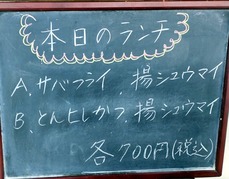 本日のランチ
A、サバフライ、揚シュウマイ
B、とんヒレかつ、揚シュウマイ
各700円(税込)